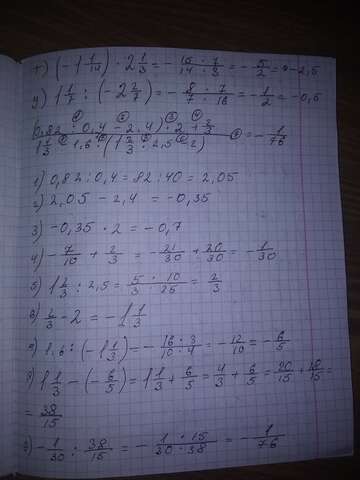 т) (-1 1/14) · 2 1/3 = - (15 · 7)/(14 · 3) = - 5/2 = -2,5
у) 1 1/7 : (-2 2/7) = - (8 · 7)/(7 · 16) = - 1/2 = -0,5
((0,82 : 0,4 - 2,4) · 2 + 2/3)/(1 1/3 - 1,6 : (1 2/3 : 2,5 - 2)) = - 1/76
1) 0,82 : 0,4 = 82 : 40 = 2,05
2) 2,05 - 2,4 = -0,35
3) -0,35 · 2 = -0,7
4) - 7/10 + 2/3 = - 21/30 + 20/30 = - 1/30
5) 1 2/3 : 2,5 = (5 · 10)/(3 · 25) = 2/3
6) 2/3 - 2 = -1 1/3
7) 1,6 : (-1 1/3) = - (16 · 3)/(10 · 4) = - 12/10 = - 6/5
8) 1 1/3 - (- 6/5) = 1 1/3 + 6/5 = 4/3 + 6/5 = 20/15 + 18/15 =
= 38/15
9) - 1/30 : 38/15 = - (1 · 15)/(30 · 38) = - 1/76